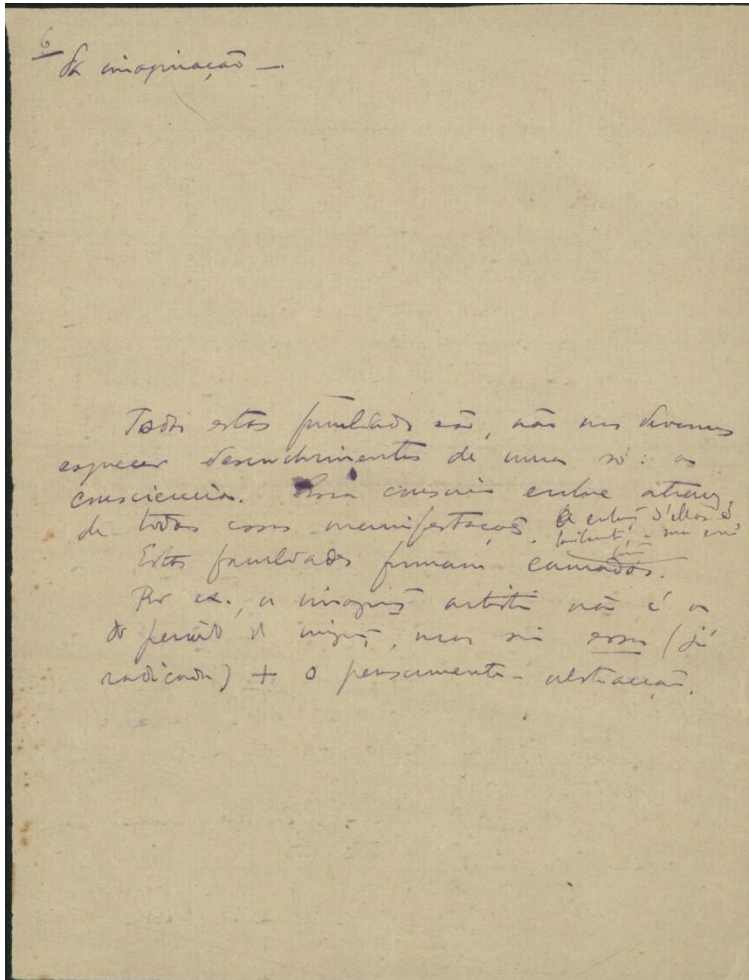 6
da imaginação —
Todas estas faculdades são, não nos devemos
esquecer desenvolvimentos de uma só: a
consciencia. Essa consciencia evolue atravez
de todas essas manifestações. A evolução d'ellas é
a sua
Estas faculdades formam camadas.
Por ex., a imaginação artistica não é a
do periodo da imaginação, mas sim essa (já
radicada) + o pensamento-abstracção.